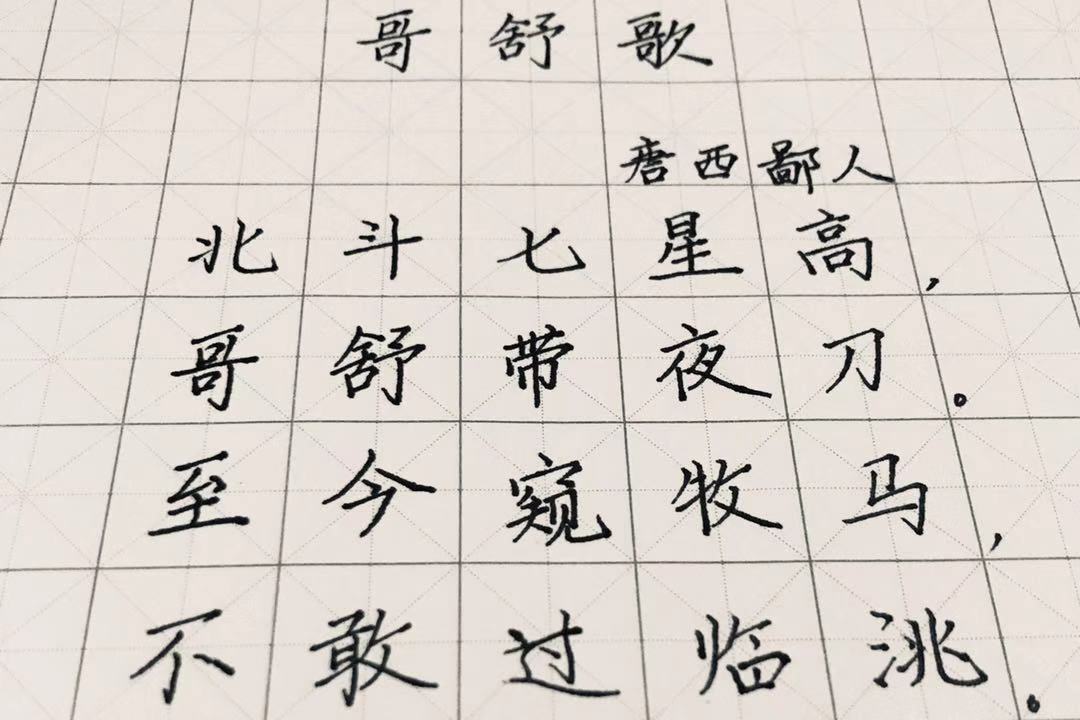 哥舒歌
唐西鄙人
北斗七星高，
哥舒带夜刀。
至今窥牧马，
不敢过临洮。